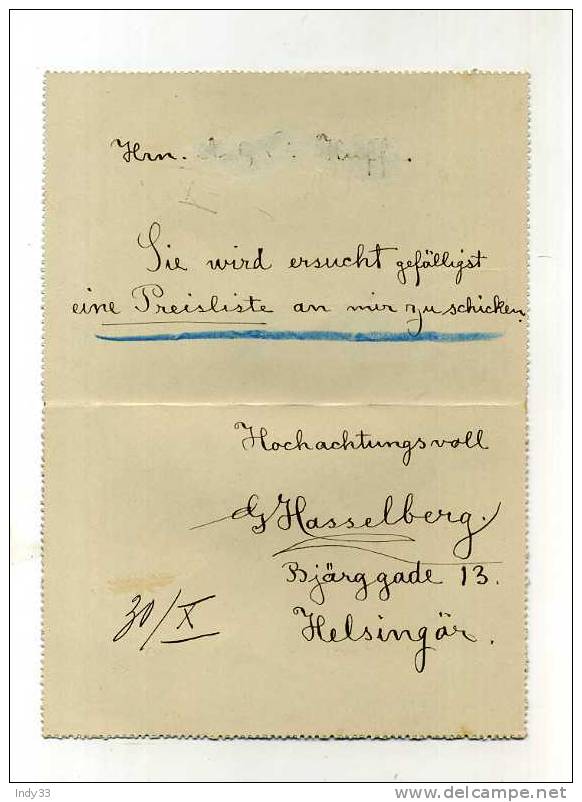 Hrn.
Sie wird ersucht gefälligst
eine Preisliste an mir zu schicken.
Hochachtungsvoll
G Hasselberg.
Bjärggade 13.
30/X
Helsingär.
Indy33
www.delcampe.net